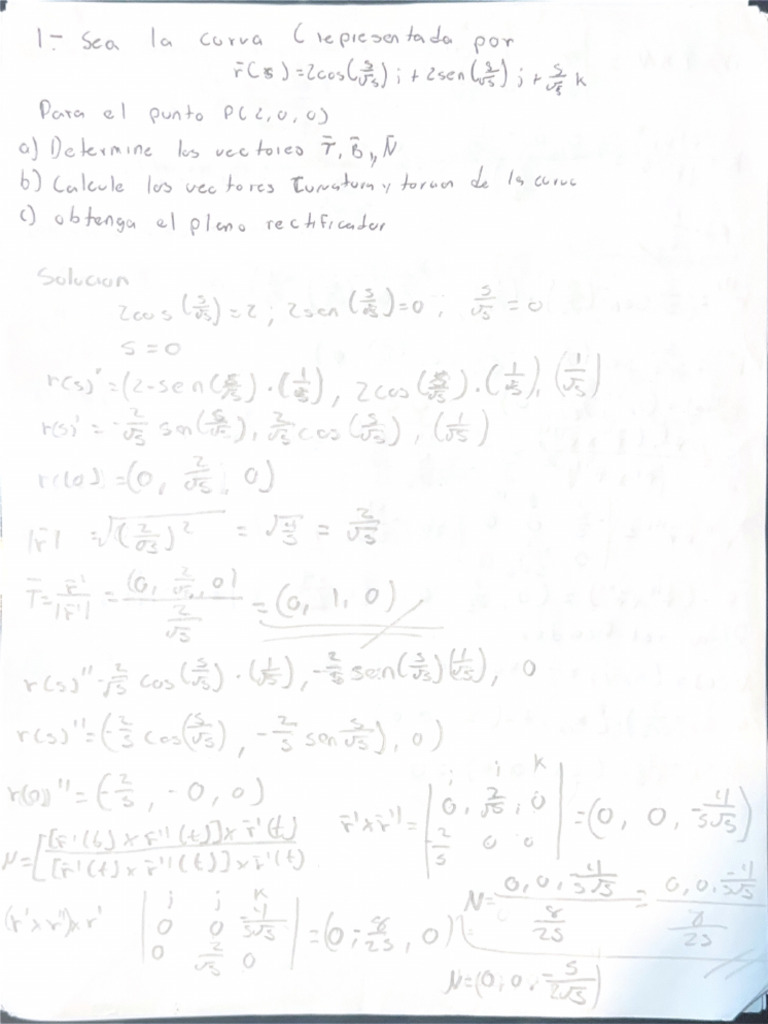 1.- Sea la curva C representada por
r̄(s)=2cos(s/√5)i+2sen(s/√5)j+s/√5 k
Para el punto P(2,0,0)
a) Determine los vectores T̄, B̄ y N̄
b) Calcule los vectores Curvatura y torsion de la curva
c) obtenga el plano rectificador
Solucion
2cos(s/√5)=2; 2sen(s/√5)=0; s/√5=0
s=0
r(s)'=(2-sen(s/√5)·(1/√5), 2cos(s/√5)·(1/√5), (1/√5)
r(s)'=-2/√5 sen(s/√5), 2/√5 cos(s/√5), (1/√5)
r'(0)=(0, 2/√5, 0)
|r̄'| =√(2/√5)² = √4/5 = 2/√5
T̄=r̄'/|r̄'| = (0, 2/√5, 0)/(2/√5) = (0, 1, 0)
r(s)"-2/√5 cos(s/√5)·(1/√5), -2/√5 sen(s/√5)(1/√5), 0
r(s)"=(-2/5 cos(s/√5), -2/5 sen s/√5), 0)
r(0)"=(-2/5, -0, 0)
r̄'×r̄"= |i j k; 0, 2/√5, 0; -2/5 0 0| =(0, 0, -4/5√5)
N=[[r̄'(t)×r̄"(t)]×r̄'(t)/[r̄'(t)×r̄"(t)]×r̄'(t)
(r'×r")×r' |i j k; 0 0 -4/5√5; 0 2/√5 0| =(0, -8/25, 0)
N= 0,0,-4/5√5 / 8/25 = 0,0,-4/5√5 / 8/25
N=(0,0,-5/2√5)